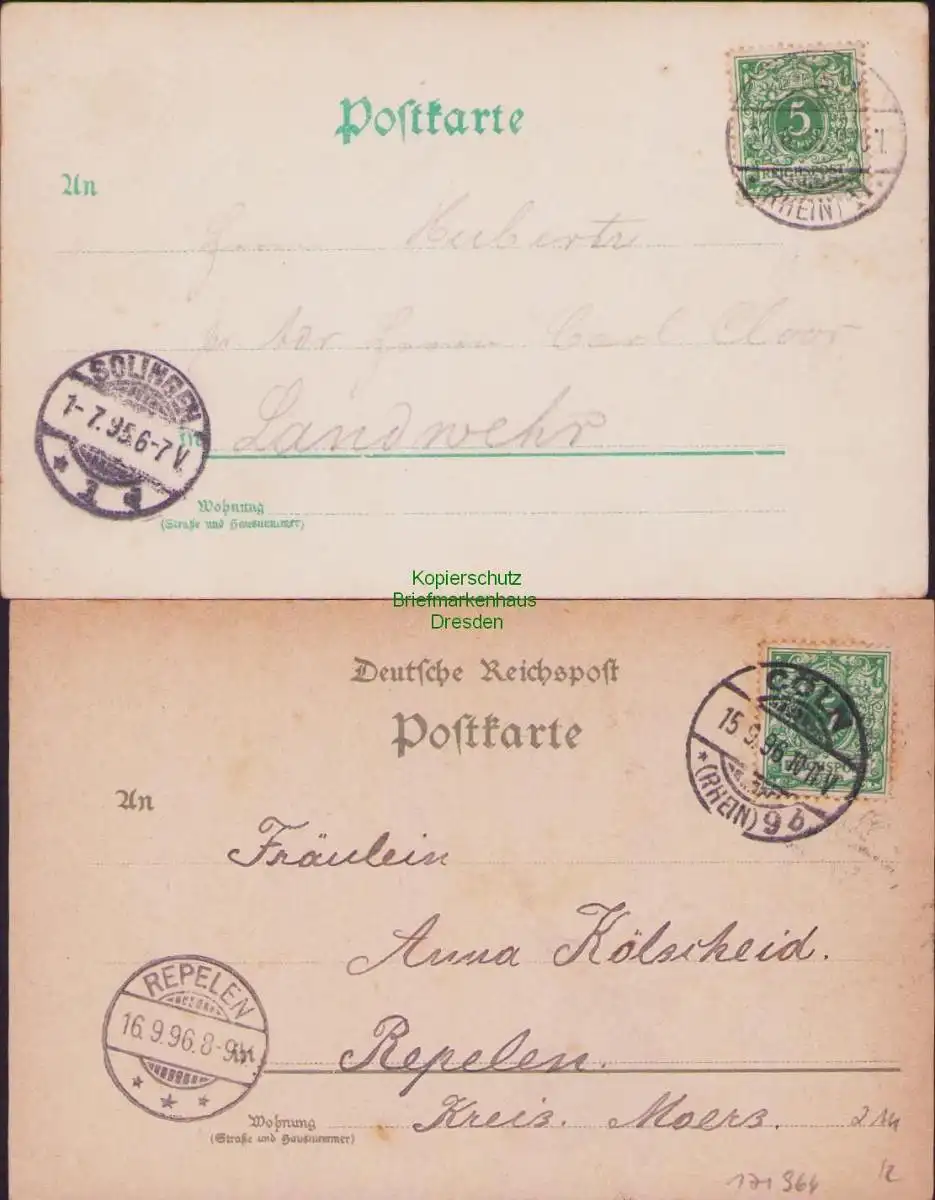 Postkarte
5
REICHSPOST
(RHEIN)
An
Herrn Hubertz
Herrn Carl Cloor
SOLINGEN
1-7.95.6-7V.
in Landwehr
Wohnung
(Straße und Hausnummer)
Kopierschutz
Briefmarkenhaus
Dresden
Deutsche Reichspost
Postkarte
CÖLN
15.9.96.
(RHEIN) 9b
An
Fräulein
Anna Kölscheid.
REPELEN
16.9.96.8-9
Repelen.
Kreis. Moers.
Wohnung
(Straße und Hausnummer)
171964